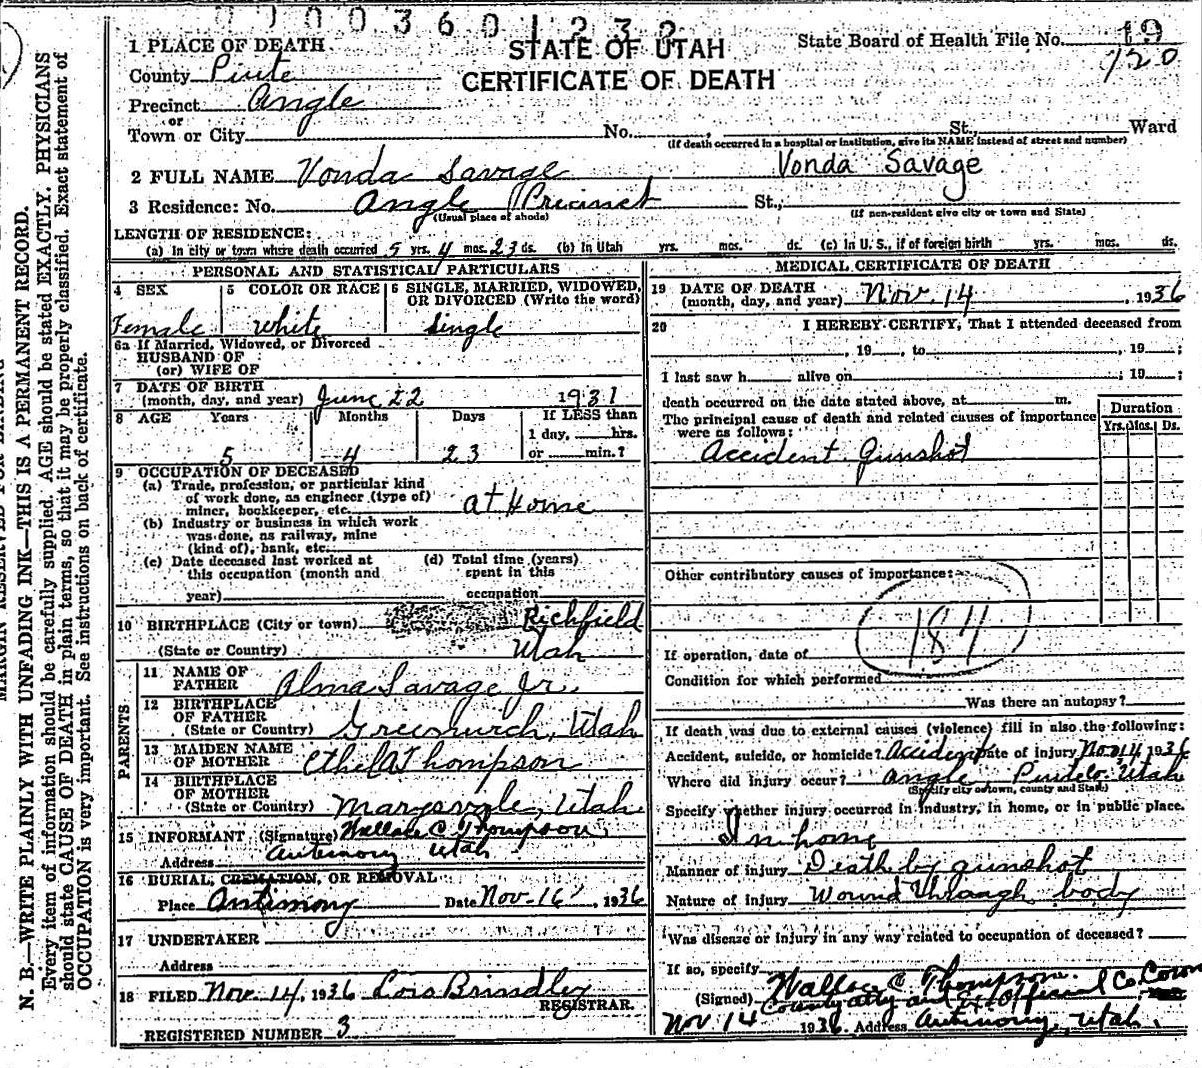 0 1 0 0 3 6 0 1 2 3 2
1 PLACE OF DEATH
STATE OF UTAH
CERTIFICATE OF DEATH
State Board of Health File No. 19
120
County Piute
Precinct Angle
or
Town or City No. , St., Ward
(If death occurred in a hospital or institution, give its NAME instead of street and number)
2 FULL NAME Vonda Savage Vonda Savage
3 Residence: No. Angle Precinct St.,
(Usual place of abode) (If non-resident give city or town and State)
LENGTH OF RESIDENCE:
(a) In city or town where death occurred 5 yrs. 4 mos. 23 ds. (b) In Utah yrs. mos. ds. (c) In U. S., if of foreign birth yrs. mos. ds.
PERSONAL AND STATISTICAL PARTICULARS
4 SEX
Female
5 COLOR OR RACE
white
6 SINGLE, MARRIED, WIDOWED, OR DIVORCED (Write the word)
Single
6a If Married, Widowed, or Divorced
HUSBAND OF
(or) WIFE OF
7 DATE OF BIRTH
(month, day, and year) June 22 1931
8 AGE Years Months Days If LESS than
1 day, hrs.
5 4 23 or min.?
9 OCCUPATION OF DECEASED
(a) Trade, profession, or particular kind
of work done, as engineer (type of)
miner, bookkeeper, etc. at Home
(b) Industry or business in which work
was done, as railway, mine
(kind of), bank, etc.
(c) Date deceased last worked at
this occupation (month and
year)
(d) Total time (years)
spent in this
occupation
10 BIRTHPLACE (City or town) Richfield
(State or Country) Utah
PARENTS
11 NAME OF
FATHER Alma Savage Jr.
12 BIRTHPLACE
OF FATHER
(State or Country) Greenwich, Utah
13 MAIDEN NAME
OF MOTHER Ethel Thompson
14 BIRTHPLACE
OF MOTHER
(State or Country) Marysvale, Utah
15 INFORMANT (Signature) Wallace C. Thompson
Address Antimony Utah
16 BURIAL, CREMATION, OR REMOVAL
Place Antimony Date Nov. 16, 1936
17 UNDERTAKER
Address
18 FILED Nov. 14, 1936 Lois Brindley
REGISTRAR.
REGISTERED NUMBER 3
MEDICAL CERTIFICATE OF DEATH
19 DATE OF DEATH
(month, day, and year) Nov. 14, 1936
20 I HEREBY CERTIFY, That I attended deceased from
, 19 , to , 19 ;
I last saw h alive on ; 19 ;
death occurred on the date stated above, at m.
The principal cause of death and related causes of importance
were as follows:
Duration
Yrs. Mos. Ds.
Accident Gunshot
Other contributory causes of importance:
184
If operation, date of
Condition for which performed
Was there an autopsy?
If death was due to external causes (violence) fill in also the following:
Accident, suicide, or homicide? Accident Date of injury Nov 14 1936
Where did injury occur? Angle Piute Co. Utah
(Specify city or town, county and State)
Specify whether injury occurred in industry, in home, or in public place.
In home
Manner of injury Death by gunshot
Nature of injury Wound through body
Was disease or injury in any way related to occupation of deceased?
If so, specify
(Signed) Wallace C. Thompson
County atty and Ex Official Co. Coron
Nov 14 1936 Address Antimony, Utah.
N. B.—WRITE PLAINLY WITH UNFADING INK—THIS IS A PERMANENT RECORD.
Every item of information should be carefully supplied. AGE should be stated EXACTLY. PHYSICIANS
should state CAUSE OF DEATH in plain terms, so that it may be properly classified. Exact statement of
OCCUPATION is very important. See instructions on back of certificate.
MARGIN RESERVED FOR